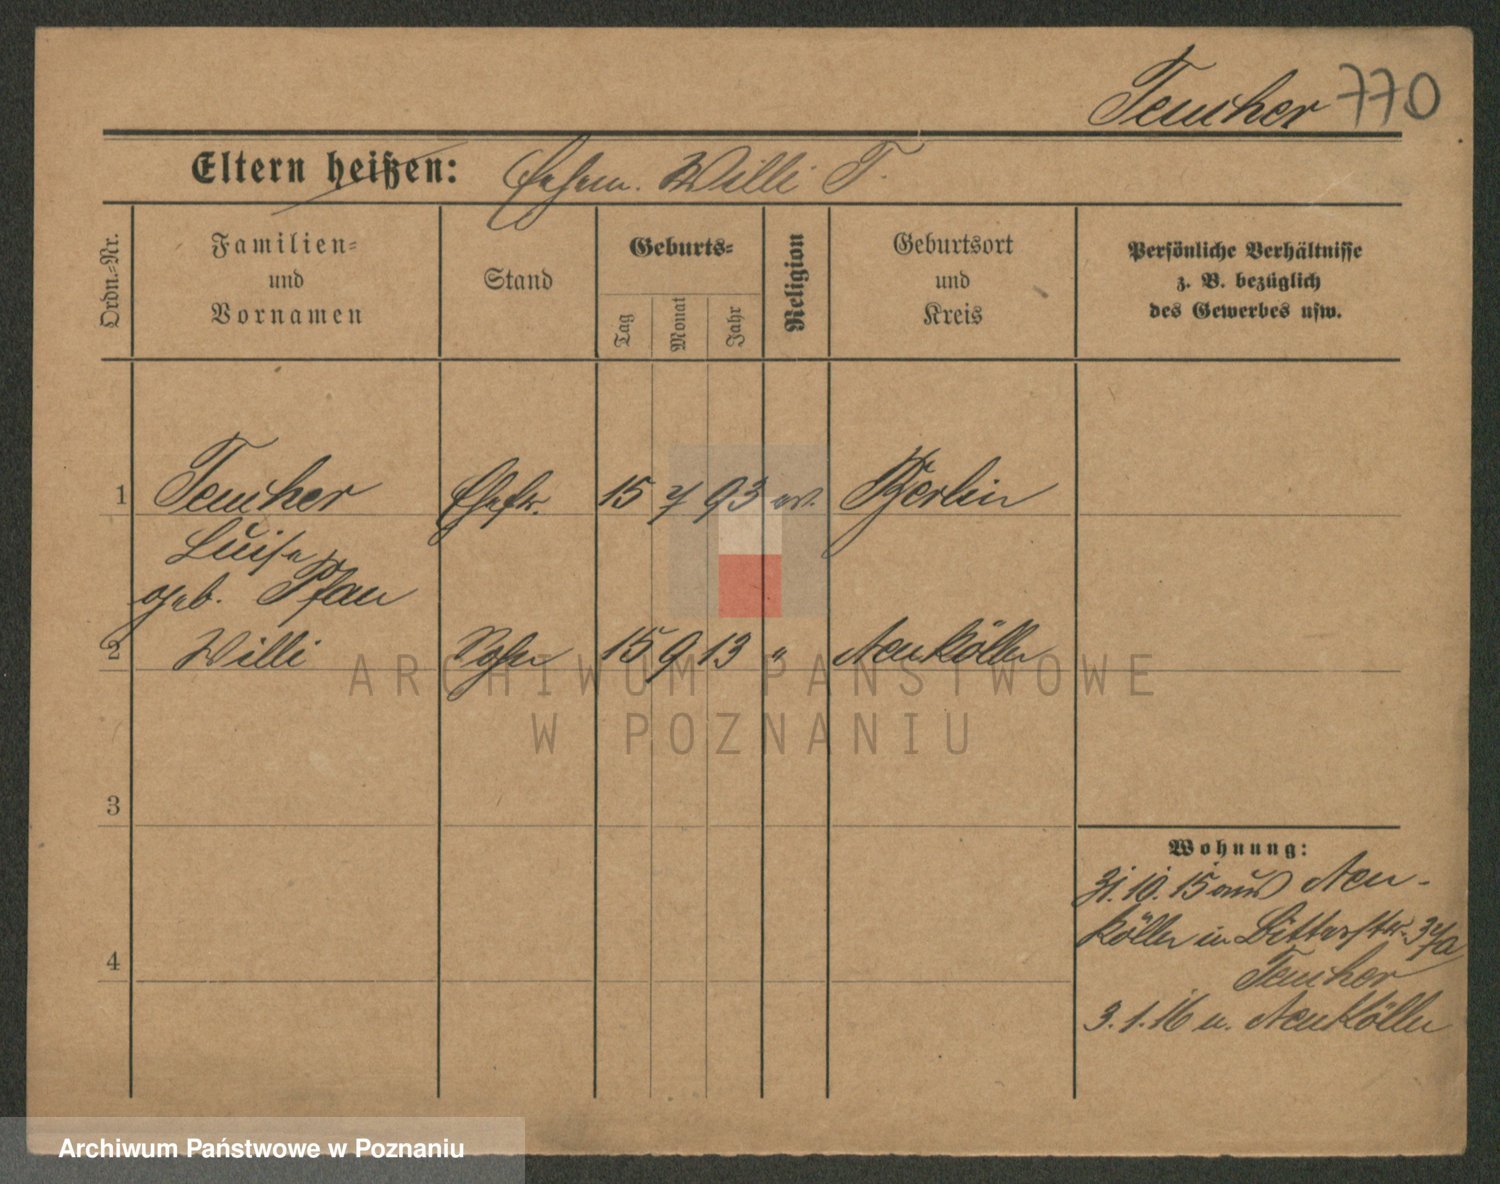 Teucher 770
Eltern heißen: Ehem. Willi T.
Ordn.-Nr.
Familien-
und
Vornamen
Stand
Geburts-
Tag
Monat
Jahr
Religion
Geburtsort
und
Kreis
Persönliche Verhältnisse
z. B. bezüglich
des Gewerbes usw.
1 Teucher Ehefr. 15 7 93 ev. Berlin
Luise
geb. Pfau
2 Willi Sohn 15 9 13 " Neukölln
3
4
Wohnung:
31.10.15 aus Neu-
kölln in Bitterstr. 37a
Teucher
3.1.16 n. Neukölln
ARCHIWUM PAŃSTWOWE
W POZNANIU
Archiwum Państwowe w Poznaniu